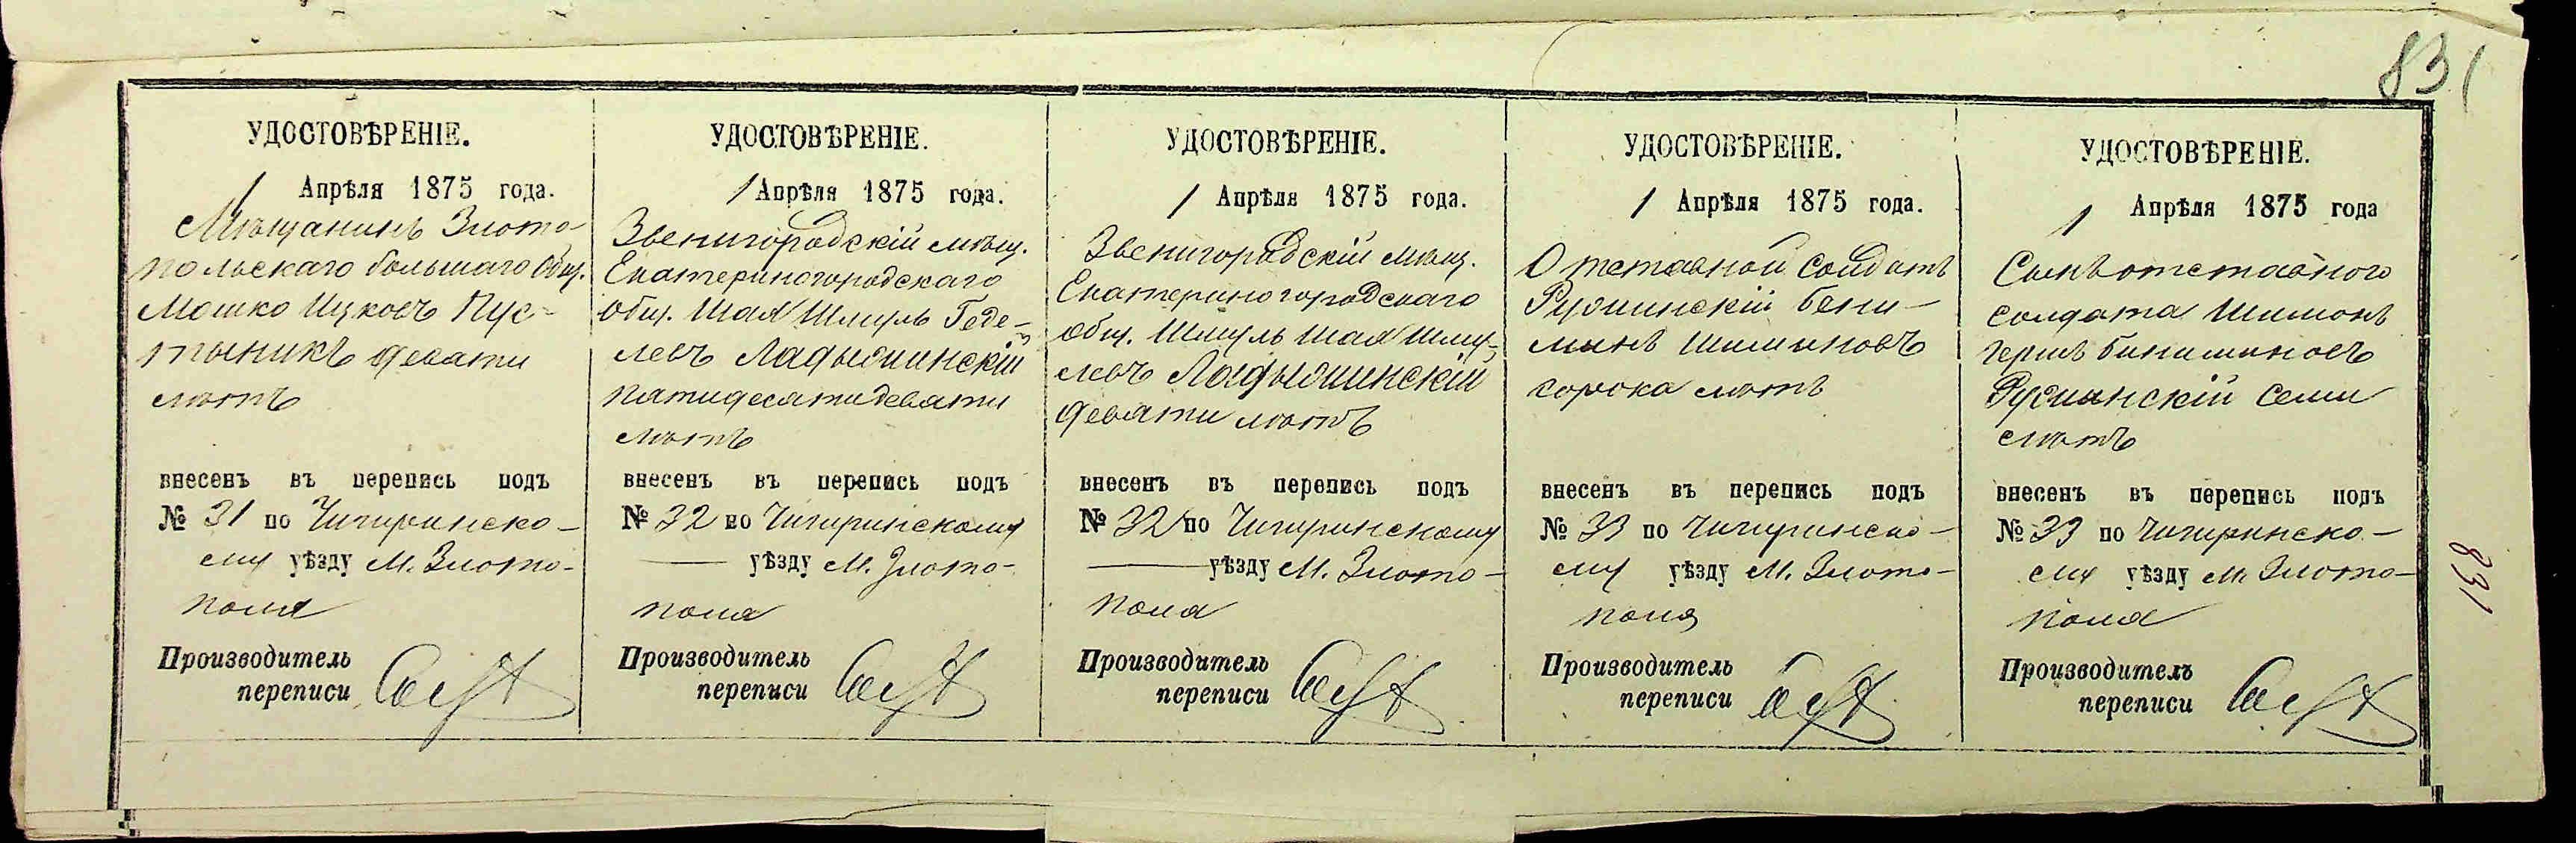 831
УДОСТОВѢРЕНІЕ.
1 Апрѣля 1875 года.
Мѣщанинъ Злото-
польскаго большаго Общ.
Мошко Ицковъ Пус-
тыникъ девяти
лѣтъ
внесенъ въ перепись подъ
№ 31 по Чигиринско-
му уѣзду М. Злото-
поля
Производитель
переписи
УДОСТОВѢРЕНІЕ.
1 Апрѣля 1875 года.
Звенигородскій мѣщ.
Екатериногородскаго
общ. Шая Шмуль Геде-
левъ Ладыжинскій
пятидесяти девяти
лѣтъ
внесенъ въ перепись подъ
№ 32 по Чигиринскому
уѣзду М. Злото-
поля
Производитель
переписи
УДОСТОВѢРЕНІЕ.
1 Апрѣля 1875 года.
Звенигородскій мѣщ.
Екатериногородскаго
общ. Шмуль Шая Шму-
левъ Ладыжинскій
девяти лѣтъ
внесенъ въ перепись подъ
№ 32 по Чигиринскому
уѣзду М. Злото-
поля
Производитель
переписи
УДОСТОВѢРЕНІЕ.
1 Апрѣля 1875 года.
Отставной солдатъ
Бени-
минъ Шимоновъ
сорока лѣтъ
внесенъ въ перепись подъ
№ 33 по Чигиринско-
му уѣзду М. Злото-
поля
Производитель
переписи
УДОСТОВѢРЕНІЕ.
1 Апрѣля 1875 года
Сынъ отставного
солдата Шимонъ
Гершъ Биниминовъ
семи
лѣтъ
внесенъ въ перепись подъ
№ 33 по Чигиринско-
му уѣзду М. Злото-
поля
Производитель
переписи
831